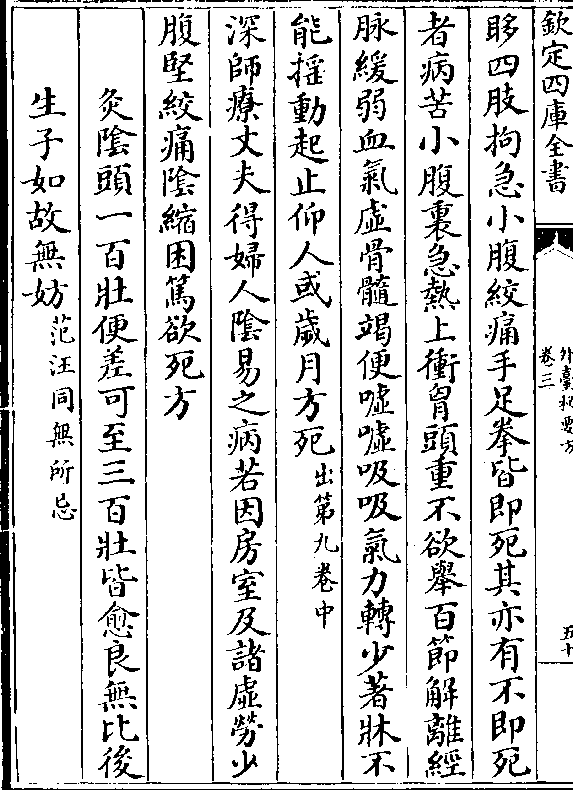 欽定四庫全書
外臺秘要方
卷三
五十
眵四肢拘急小腹絞痛手足拳皆即死其亦有不即死
者病苦小腹裏急熱上衝胷頭重不欲舉百節解離經
脉緩弱血氣虛骨髓竭便噓噓吸吸氣力轉少著牀不
能摇動起止仰人或歲月方死出第九卷中
深師療丈夫得婦人陰易之病若因房室及諸虛勞少
腹堅絞痛陰縮困篤欲死方
灸陰頭一百壯便差可至三百壯皆愈良無比後
生子如故無妨范汪同無所忌